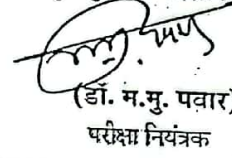 (डॉ. म.मु. पवार)
परीक्षा नियंत्रक